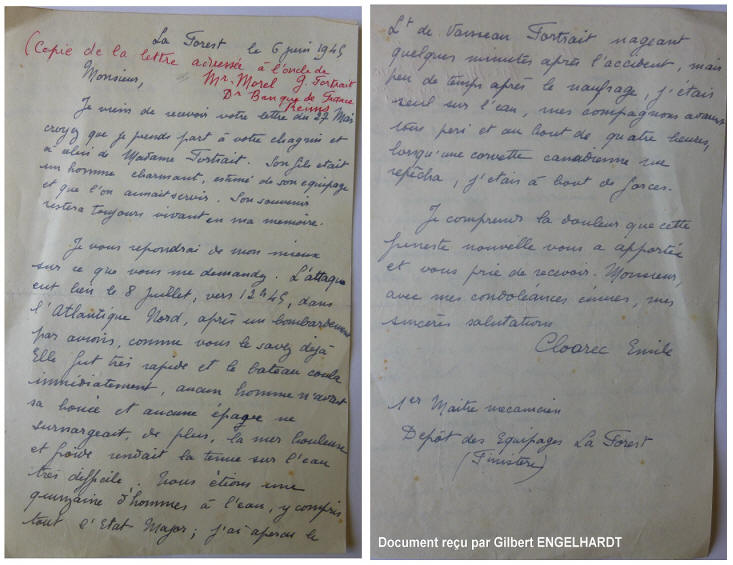 La Forest le 6 juin 1945
(Copie de la lettre adressée à l'oncle de
Monsieur, Mr. Morel G. Fortrait
Dr Banque de France
Reims)
Je viens de recevoir votre lettre du 27 Mai
croyez que je prends part à votre chagrin et
à celui de Madame Fortrait. Son fils était
un homme charmant, estimé de son equipage
et que l'on aimait servir. Son souvenir
restera toujours vivant en ma memoire.
Je vous repondrai de mon mieux
sur ce que vous me demandez. L'attaque
eut lieu le 8 Juillet, vers 12h45, dans
l'Atlantique Nord, après un bombardement
par avions, comme vous le savez déjà
Elle fut très rapide et le bateau coula
immédiatement, aucun homme n'avait
sa bouée et aucune épave ne
surnargeait, de plus, la mer houleuse
et froide rendait la tenue sur l'eau
très difficile. Nous étions une
quinzaine d'hommes à l'eau, y compris
tout l'Etat Major; j'ai aperçu le
Lt de Vaisseau Fortrait nageant
quelques minutes après l'accident, mais
peu de temps après le naufrage, j'étais
seul sur l'eau, mes compagnons avaient
tous peri et au bout de quatre heures,
lorsqu'une corvette canadienne me
repêcha, j'étais à bout de forces.
Je comprends la douleur que cette
funeste nouvelle vous a apportée
et vous prie de recevoir. Monsieur,
avec mes condoléances émues, mes
sincères salutations
Cloarec Emile
1er Maitre mecanicien
Depôt des Equipages La Forest
(Finistère)
Document reçu par Gilbert ENGELHARDT